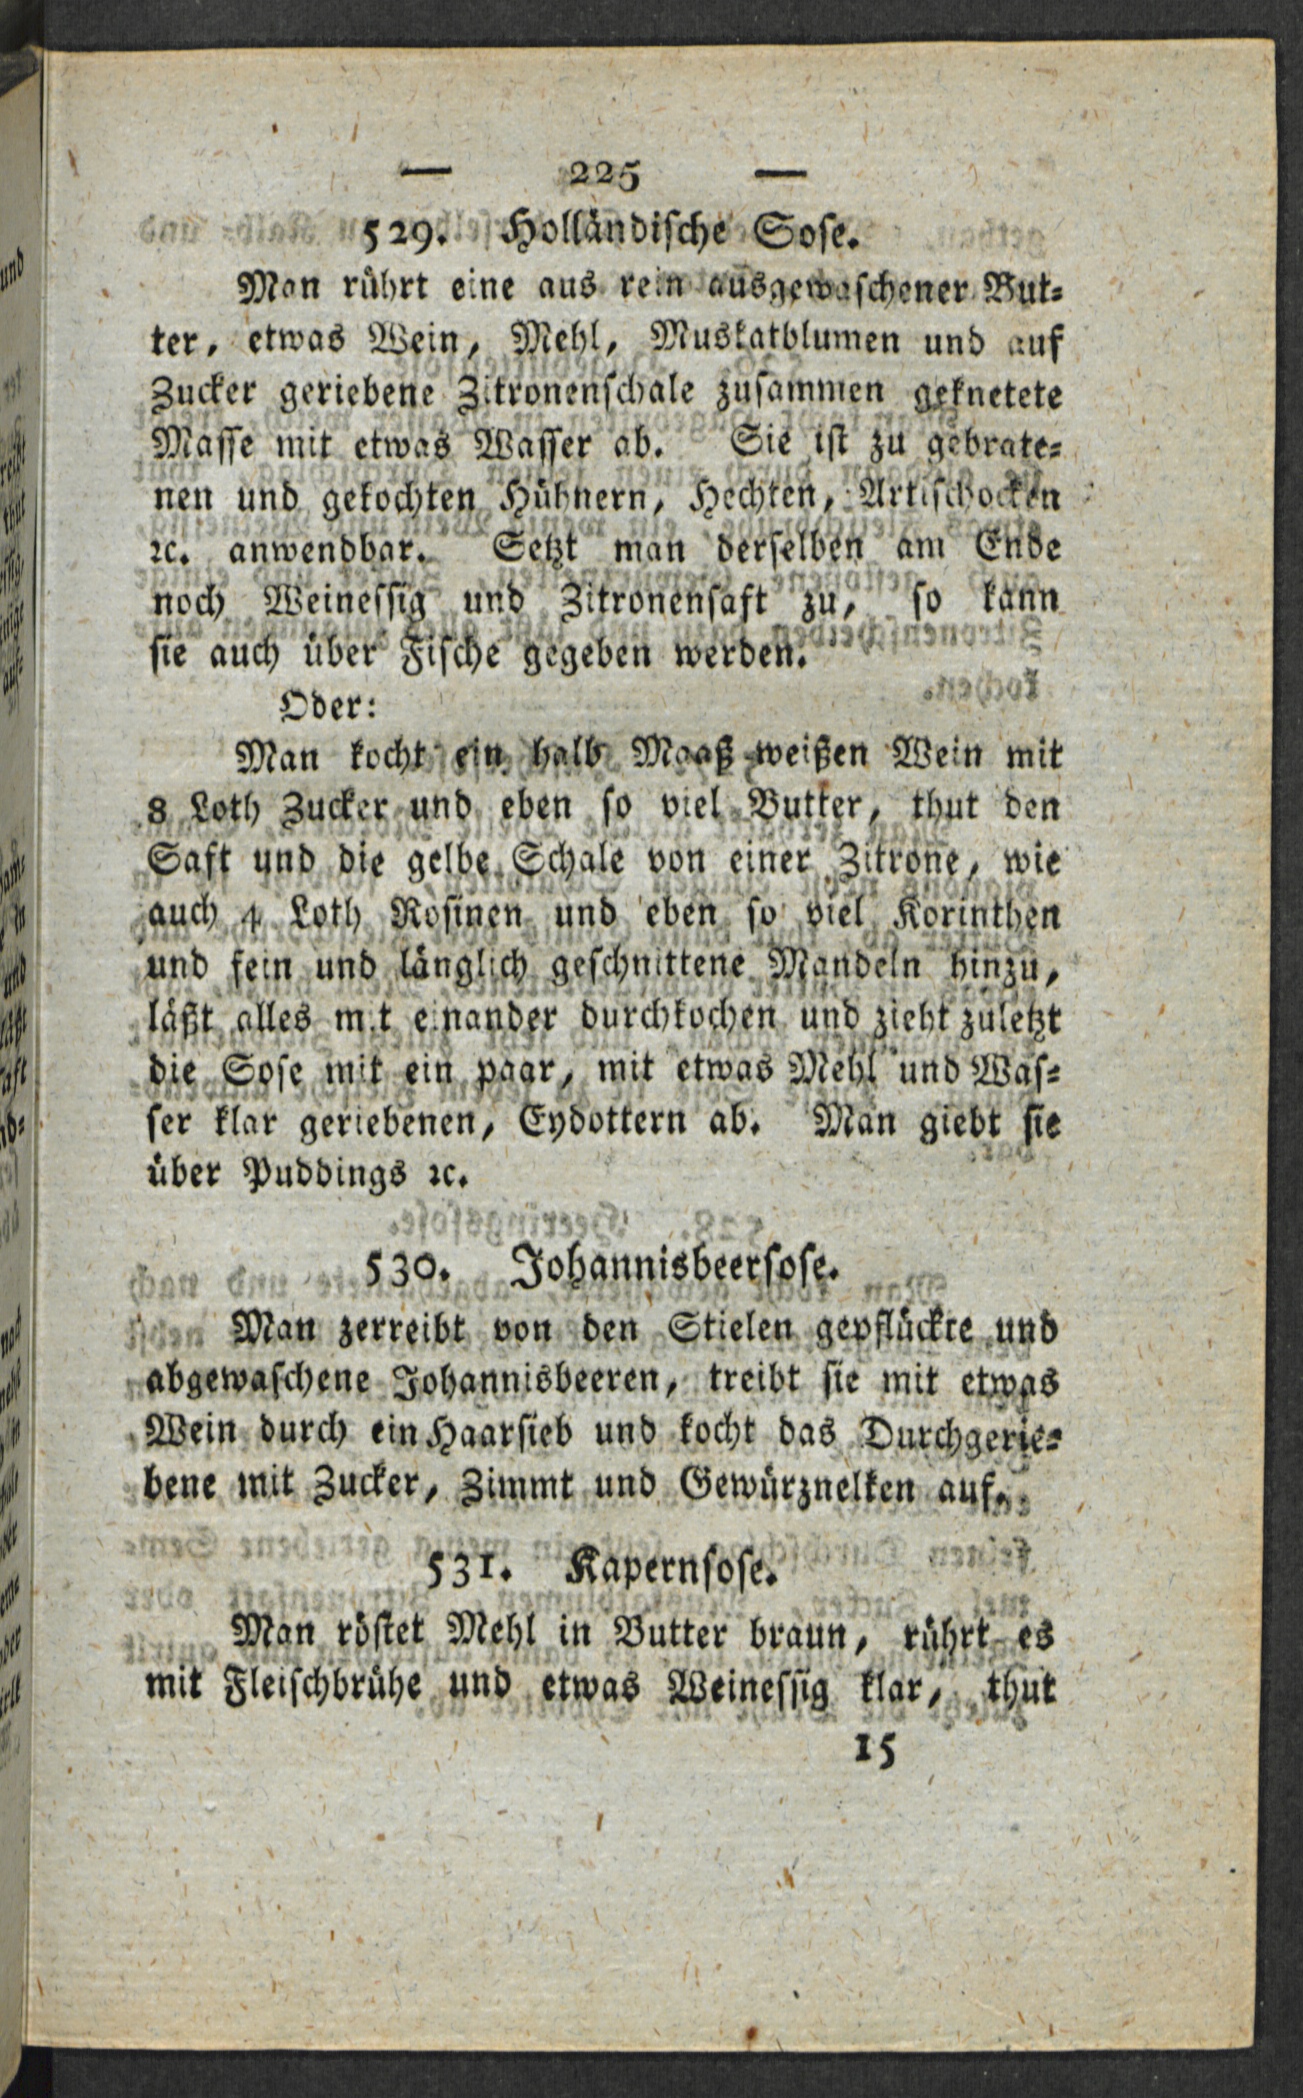 — 225 —
529. Holländische Sose.
Man rührt eine aus rein ausgewaschener But-
ter, etwas Wein, Mehl, Muskatblumen und auf
Zucker geriebene Zitronenschale zusammen geknetete
Masse mit etwas Wasser ab. Sie ist zu gebrate-
nen und gekochten Hühnern, Hechten, Artischocken
ꝛc. anwendbar. Setzt man derselben am Ende
noch Weinessig und Zitronensaft zu, so kann
sie auch über Fische gegeben werden.
Oder:
Man kocht ein halb Maaß weißen Wein mit
8 Loth Zucker und eben so viel Butter, thut den
Saft und die gelbe Schale von einer Zitrone, wie
auch 4 Loth Rosinen und eben so viel Korinthen
und fein und länglich geschnittene Mandeln hinzu,
läßt alles mit einander durchkochen und zieht zuletzt
die Sose mit ein paar, mit etwas Mehl und Was-
ser klar geriebenen, Eydottern ab. Man giebt sie
über Puddings ꝛc.
530. Johannisbeersose.
Man zerreibt von den Stielen gepflückte und
abgewaschene Johannisbeeren, treibt sie mit etwas
Wein durch ein Haarsieb und kocht das Durchgerie-
bene mit Zucker, Zimmt und Gewürznelken auf.
531. Kapernsose.
Man röstet Mehl in Butter braun, rührt es
mit Fleischbrühe und etwas Weinessig klar, thut
15